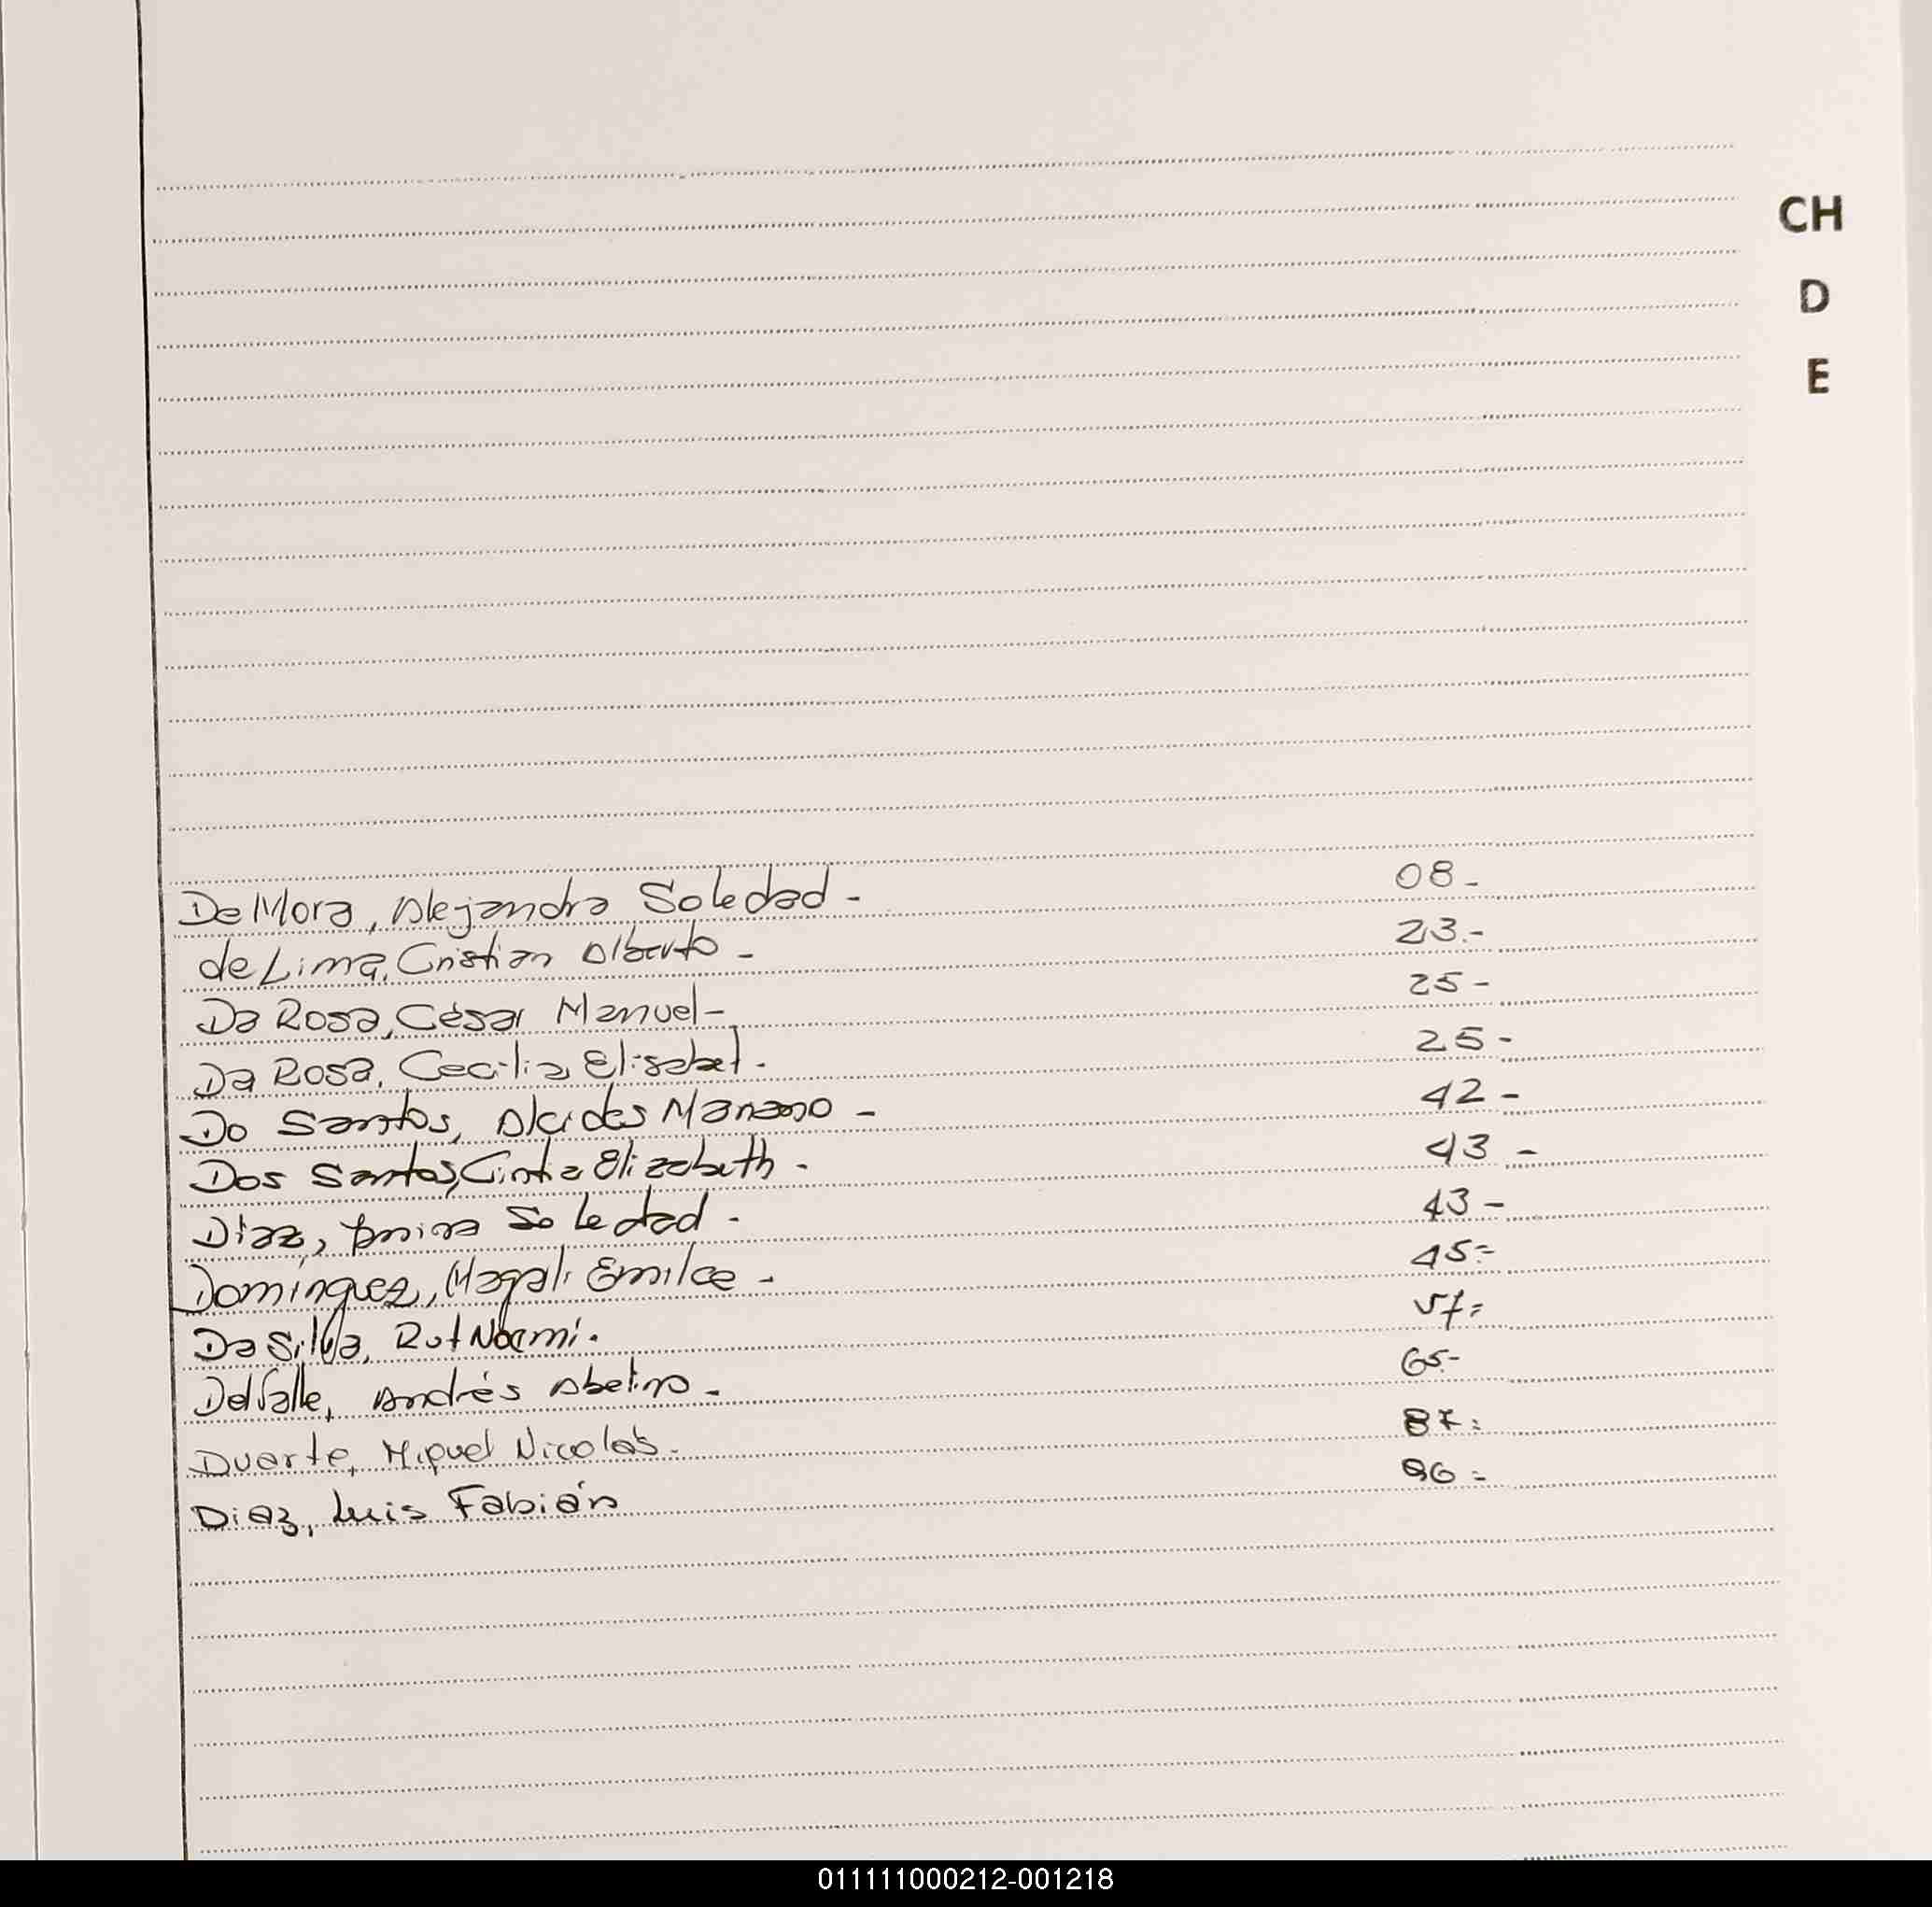 CH
D
E
De Mora, Alejandra Soledad - 08-
de Lima, Cristian Alberto - 23.-
Da Rosa, César Manuel - 25-
Da Rosa, Cecilia Elisabet. 25-
Do Santos, Alcides Mariano - 42-
Dos Santos, Cintia Elizabeth - 43-
Díaz, Soledad - 43-
Domínguez, Magali Emilce - 45=
Da Silva, Rut Noemi. 57=
Del Valle, Andrés Abelino - 65-
Duarte, Miguel Nicolás - 87=
Diaz, Luis Fabián 96=
011111000212-001218